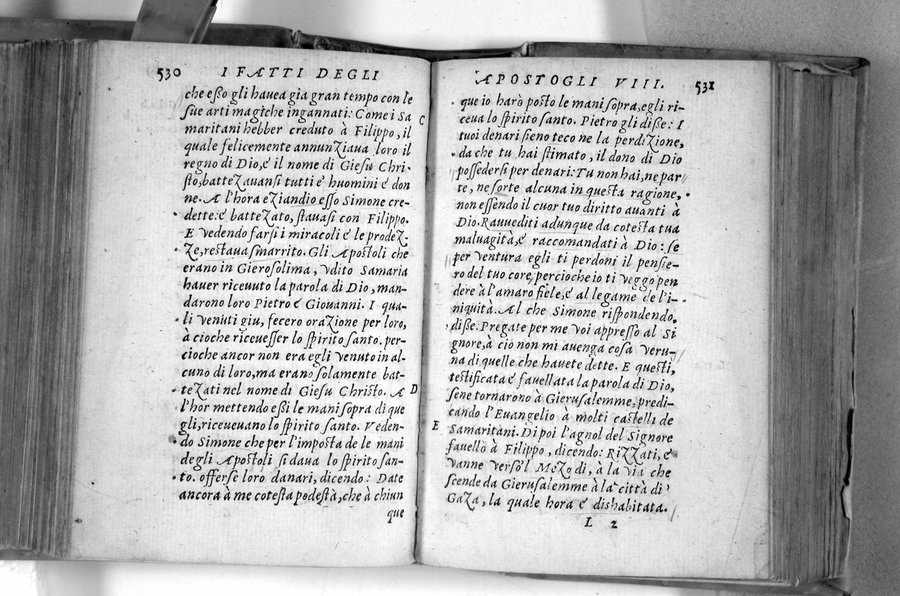 530 I FATTI DEGLI
che eßo gli hauea gia gran tempo con le
sue arti magiche ingannati: Come i Sa
maritani hebber creduto à Filippo, il
quale felicemente annunZiaua loro il
regno di Dio, é il nome di Giesu Chri-
sto, batteZauansi tutti é huomini é don
ne. Al'hora eZiandio esso Simone cre-
dette: é batteZato, stauasi con Filippo.
E vedendo farsi i miracoli é le prodeZ
Ze, restaua smarrito. Gli Apostoli che
erano in Gierosolima, vdito Samaria
hauer riceuuto la parola di Dio, man-
darono loro Pietro é Giouanni. I qua-
li venuti giu, fecero oraZione per loro,
à cioche riceuesser lo spirito santo. per-
cioche ancor non era egli venuto in al-
cuno di loro, ma erano solamente bat-
teZati nel nome di Giesu Christo. A
l'hor mettendo eßi le mani sopra di que
gli, riceueuano lo spirito santo. Veden-
do Simone che per l'imposta de le mani
degli Apostoli si daua lo spirito san-
to. offerse loro danari, dicendo: Date
ancora à me cotesta podestà, che à chiun
que
C
D
APOSTOGLI VIII. 531
que io harò posto le mani sopra, egli ri-
ceua lo spirito santo. Pietro gli diße: I
tuoi denari sieno teco ne la perdiZione,
da che tu hai stimato, il dono di Dio
possedersi per denari: Tu non hai, ne par
te, ne sorte alcuna in questa ragione,
non essendo il cuor tuo diritto auanti à
Dio. Rauuediti adunque da cotesta tua
maluagità, é raccomandati à Dio: se
per ventura egli ti perdoni il pensie-
ro del tuo core, percioche io ti veggo pen
dere à l'amaro fiele, é al legame de l'i-
niquita. Al che Simone rispondendo,
diße. Pregate per me voi appresso al Si
gnore, à ciò non mi auenga cosa veru-
na di quelle che hauete dette. E questi,
testificata é fauellata la parola di Dio,
sene tornarono à Gierusalemme, predi-
cando l'Euangelio à molti castelli de
Samaritani. Di poi l'agnol del Signore
fauellò à Filippo, dicendo: RiZZati, é
vanne verso'l MeZo di, à la via che
scende da Gierusalemme à la città di
GaZa, la quale hora é dishabitata.
E
L 2